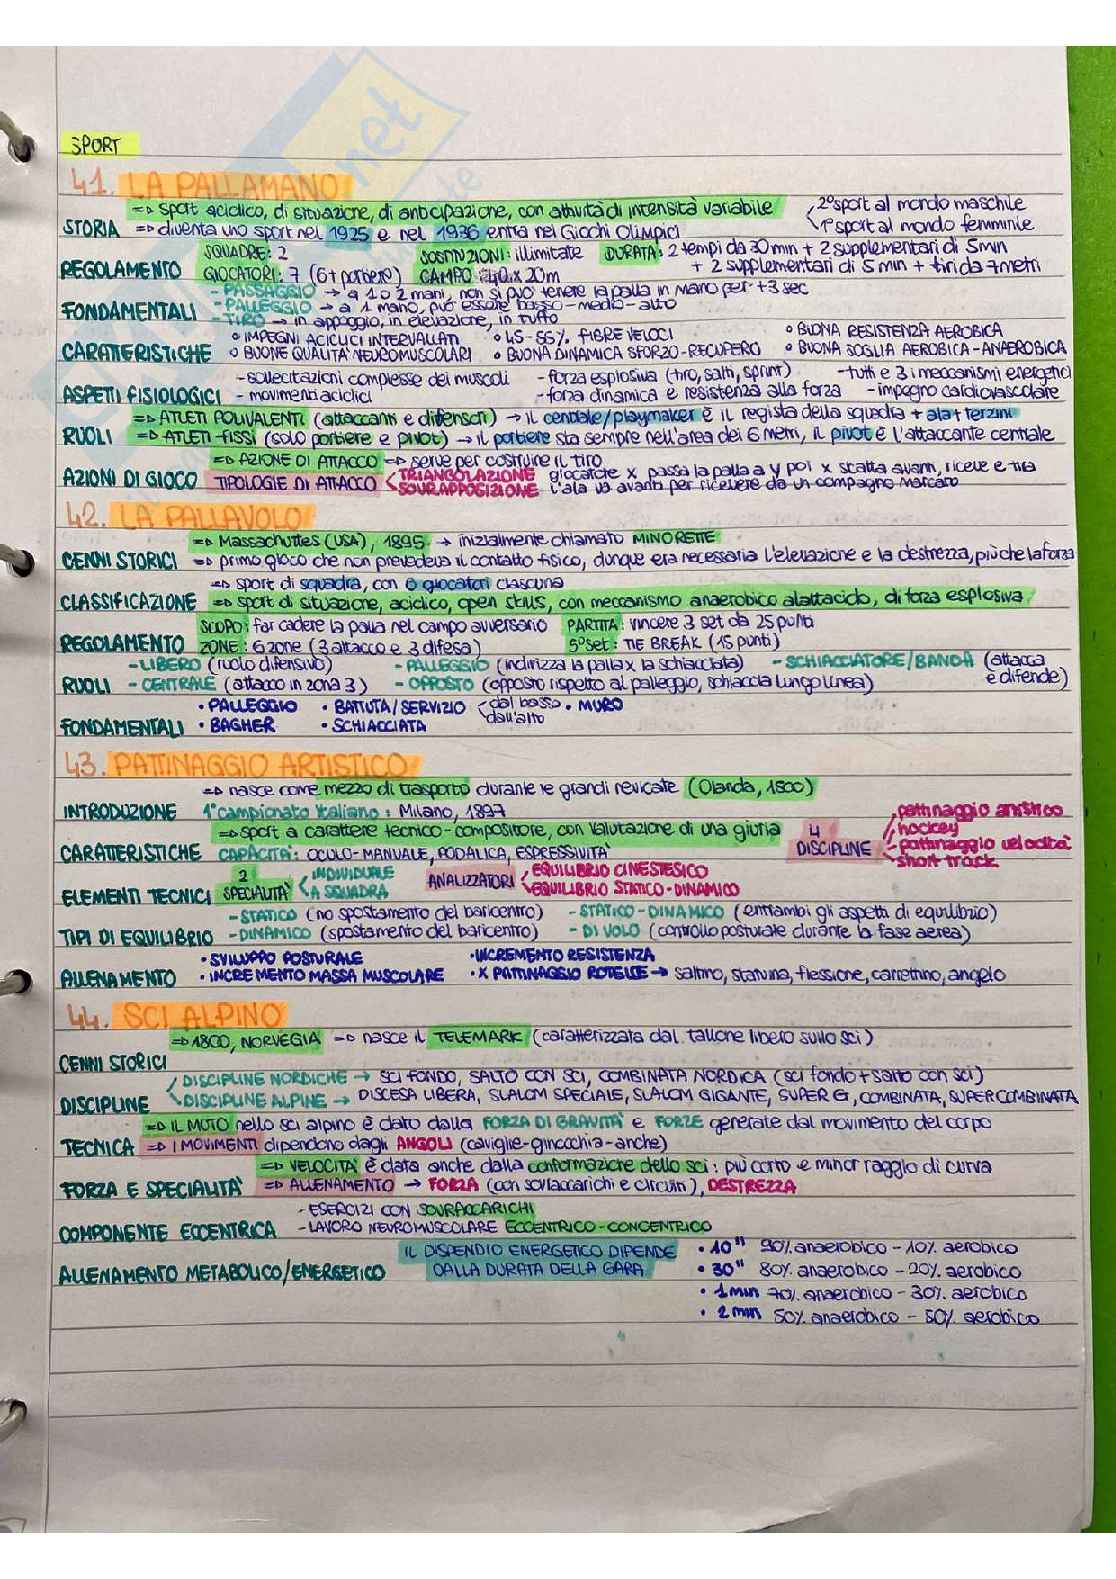 SPORT
41. LA PALLAMANO
=> sport aciclico, di situazione, di anticipazione, con attività di intensità variabile
2° sport al mondo maschile
1° sport al mondo femminile
STORIA => diventa uno sport nel 1925 e nel 1936 entra nei Giochi Olimpici
SQUADRE: 2 SOSTITUZIONI: illimitate DURATA: 2 tempi da 30 min + 2 supplementari di 5 min
REGOLAMENTO GIOCATORI: 7 (6 + portiere) CAMPO: 40 x 20m + 2 supplementari di 5 min + tiri da 7 metri
- PASSAGGIO → a 1 o 2 mani, non si può tenere la palla in mano per +3 sec
FONDAMENTALI - PALLEGGIO → a 1 mano, può essere basso-medio-alto
- TIRO → in appoggio, in elevazione, in tuffo
• IMPEGNI ACICLICI INTERVALLATI • 45-55% FIBRE VELOCI • BUONA RESISTENZA AEROBICA
CARATTERISTICHE • BUONE QUALITA' NEUROMUSCOLARI • BUONA DINAMICA SFORZO-RECUPERO • BUONA SOGLIA AEROBICA-ANAEROBICA
- sollecitazioni complesse dei muscoli - forza esplosiva (tiro, salti, sprint) - tutti e 3 i meccanismi energetici
ASPETTI FISIOLOGICI - movimenti aciclici - forza dinamica e resistenza alla forza - impegno cardiovascolare
=> ATLETI POLIVALENTI (attaccanti e difensori) → il centrale/playmaker è il regista della squadra + ala + terzini
RUOLI => ATLETI FISSI (solo portiere e pivot) → il portiere sta sempre nell'area dei 6 metri, il pivot è l'attaccante centrale
=> AZIONE DI ATTACCO → serve per costruire il tiro
AZIONI DI GIOCO TIPOLOGIE DI ATTACCO TRIANGOLAZIONE giocatore x passa la palla a y poi x scatta avanti, riceve e tira
SOVRAPPOSIZIONE l'ala va avanti per ricevere da un compagno marcato
42. LA PALLAVOLO
=> Massachuttes (USA), 1895 → inizialmente chiamato MINORETTE
CENNI STORICI => primo gioco che non prevedeva il contatto fisico, dunque era necessaria l'elevazione e la destrezza, più che la forza
=> sport di squadra, con 6 giocatori ciascuna
CLASSIFICAZIONE => sport di situazione, aciclico, open skills, con meccanismo anaerobico alattacido, di forza esplosiva
SCOPO: far cadere la palla nel campo avversario PARTITA: vincere 3 set da 25 punti
REGOLAMENTO ZONE: 6 zone (3 attacco e 3 difesa) 5° set: TIE BREAK (15 punti)
- LIBERO (ruolo difensivo) - PALLEGGIO (indirizza la palla x la schiacciata) - SCHIACCIATORE/BANDA (attacca e difende)
RUOLI - CENTRALE (attacco in zona 3) - OPPOSTO (opposto rispetto al palleggio, schiaccia lungo linea)
• PALLEGGIO • BATTUTA/SERVIZIO dal basso dall'alto • MURO
FONDAMENTALI • BAGHER • SCHIACCIATA
43. PATTINAGGIO ARTISTICO
=> nasce come mezzo di trasporto durante le grandi nevicate (Olanda, 1800)
INTRODUZIONE 1° campionato italiano: Milano, 1897
=> sport a carattere tecnico-compositore, con valutazione di una giuria
CARATTERISTICHE CAPACITA': OCULO-MANUALE, PODALICA, ESPRESSIVITA'
4 DISCIPLINE
pattinaggio artistico
hockey
pattinaggio velocità
short track
ELEMENTI TECNICI 2 SPECIALITA' INDIVIDUALE A SQUADRA
ANALIZZATORI EQUILIBRIO CINESTESICO
EQUILIBRIO STATICO-DINAMICO
- STATICO (no spostamento del baricentro) - STATICO-DINAMICO (entrambi gli aspetti di equilibrio)
TIPI DI EQUILIBRIO - DINAMICO (spostamento del baricentro) - DI VOLO (controllo posturale durante la fase aerea)
• SVILUPPO POSTURALE • INCREMENTO RESISTENZA
ALLENAMENTO • INCREMENTO MASSA MUSCOLARE • X PATTINAGGIO ROTELLE → saltino, statuina, flessione, carrettino, angelo
44. SCI ALPINO
=> 1800, NORVEGIA => nasce il TELEMARK (caratterizzata dal tallone libero sullo sci)
CENNI STORICI
DISCIPLINE NORDICHE → SCI FONDO, SALTO CON SCI, COMBINATA NORDICA (sci fondo + salto con sci)
DISCIPLINE DISCIPLINE ALPINE → DISCESA LIBERA, SLALOM SPECIALE, SLALOM GIGANTE, SUPER G, COMBINATA, SUPER COMBINATA
=> IL MOTO nello sci alpino è dato dalla FORZA DI GRAVITA' e FORZE generate dal movimento del corpo
TECNICA => I MOVIMENTI dipendono dagli ANGOLI (caviglie-ginocchia-anche)
=> VELOCITA' è data anche dalla conformazione dello sci: più corto e minor raggio di curva
FORZA E SPECIALITA' => ALLENAMENTO → FORZA (con sovraccarichi e circuiti), DESTREZZA
- ESERCIZI CON SOVRACCARICHI
COMPONENTE ECCENTRICA - LAVORO NEUROMUSCOLARE ECCENTRICO-CONCENTRICO
IL DISPENDIO ENERGETICO DIPENDE • 10" 90% anaerobico - 10% aerobico
ALLENAMENTO METABOLICO/ENERGETICO DALLA DURATA DELLA GARA • 30" 80% anaerobico - 20% aerobico
• 1 min 70% anaerobico - 30% aerobico
• 2 min 50% anaerobico - 50% aerobico